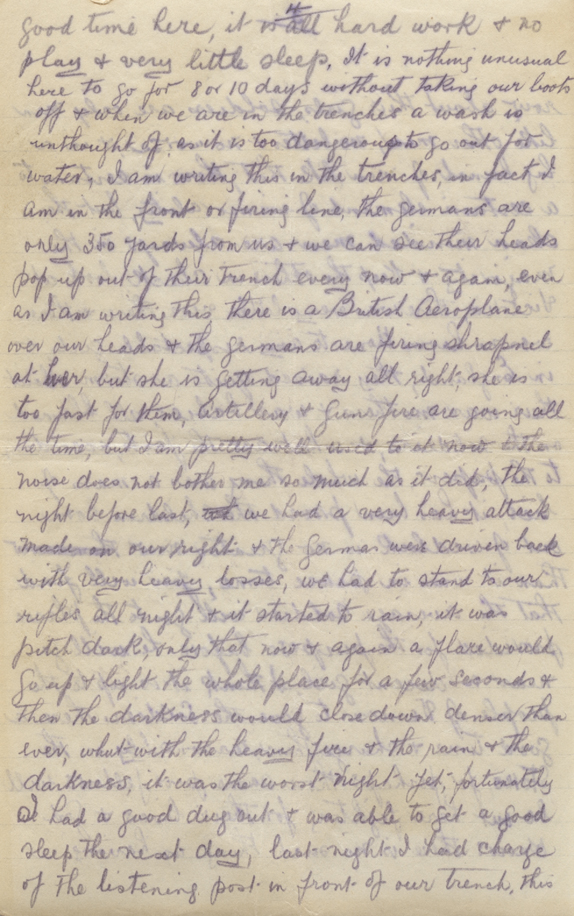 4
good time here, it is all hard work & no
play & very little sleep. It is nothing unusual
here to go for 8 or 10 days without taking our boots
off & when we are in the trenches a wash is
unthought of, as it is too dangerous to go out for
water, I am writing this in the trenches, in fact I
am in the front or firing line, the germans are
only 350 yards from us & we can see their heads
pop up out of their trench every now & again, even
as I am writing this, there is a British Aeroplane
over our heads & the germans are firing shrapnel
at her, but she is getting away all right, she is
too fast for them, Artillery & Guns fire are going all
the time, but I am pretty well used to it now & the
noise does not bother me so much as it did, the
night before last, we had a very heavy attack
made on our right & the German were driven back
with very heavy losses, we had to stand to our
rifles all night & it started to rain, it was
pitch dark, only that now & again a flare would
go up & light the whole place for a few seconds &
then the darkness would close down denser than
ever, what with the heavy fire & the rain & the
darkness, it was the worst night yet, fortunately
I had a good dug out & was able to get a good
sleep the next day, last night I had charge
of the listening post in front of our trench, this